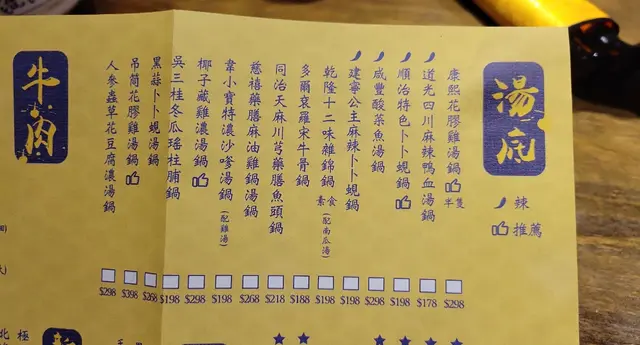 湯底
辣
推薦
康熙花膠雞湯鍋 半隻 $298
道光四川麻辣鴨血湯鍋 $178
順治特色卜卜蜆鍋 $198
咸豐酸菜魚湯鍋 $298
建寧公主麻辣卜卜蜆鍋 $198
乾隆十二味雜錦鍋 素食(配南瓜湯) $198
多爾袞羅宋牛骨鍋 $188
同治天麻川芎藥膳魚頭鍋 $218
慈禧藥膳麻油雞鍋湯鍋 $268
韋小寶特濃沙嗲湯鍋(配雞湯) $198
椰子藏雞濃湯鍋 $298
吳三桂冬瓜瑤柱脯鍋 $198
黑蒜卜卜蜆湯鍋 $268
吊筒花膠雞湯鍋 $398
人參蟲草花豆腐濃湯鍋 $298
牛肉
北極